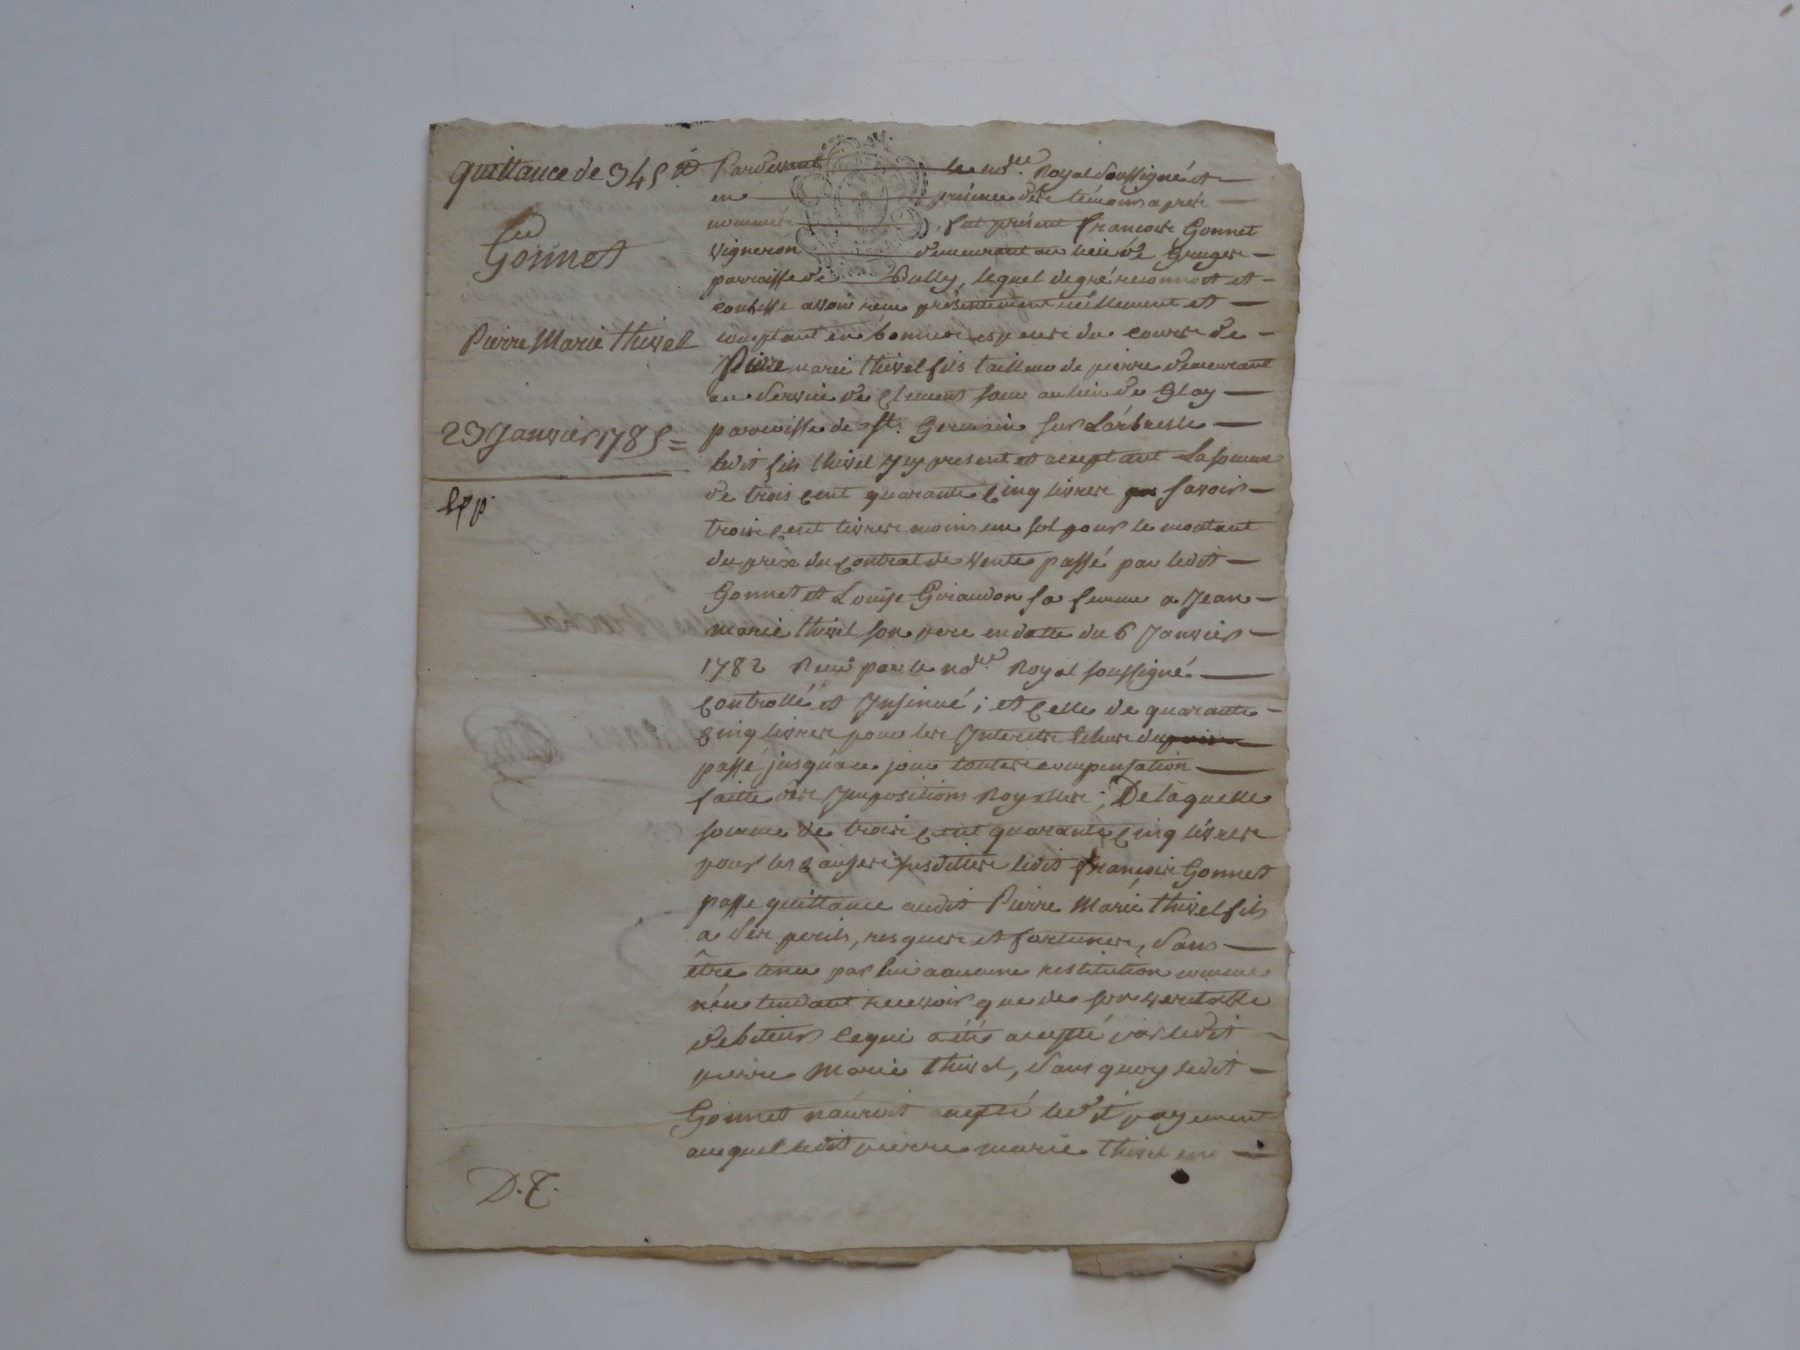 quittance de 345 ₶
Gonnet
Pierre Marie thivel
23 Janvier 1785 =
Exp.
Pardevant le no.re Royal soussigné et
en présence des témoins apres
nommés, fut présent françois Gonnet
Vigneron demeurant au lieu de
parroisse de Bully, lequel de gré reconnoit et
confesse avoir reçu présentement réellement et
comptant en bonnes especes du cours de
Pierre marie thivel fils tailleur de pierre demeurant
au service de Clement au lieu du Glay
parroisse de St. Germain sur Larbresle
ledit fils thivel Icy present et aceptant La somme
de trois cent quarante cinq livres savoir
trois cent livres moins un sol pour le montant
du prix du Contrat de Vente passé par ledit
Gonnet et Louise Giraudon sa femme a Jean
marie thivel son pere en datte du 6 Janvier
1782 Reçu par le no.re Royal soussigné
controllé et Insinué ; et celle de quarante
cinq livres pour les Interets
passé jusqu'à ce jour toutes compensation
faitte des Impositions Royalles ; De laquelle
somme de trois cent quarante cinq livres
pour les causes susdittes ledit françois Gonnet
passe quittance audit Pierre Marie thivel fils
a ses perils, resques et fortunes, sans
être tenu par lui a aucune restitution comme
n'entendant recevoir que de son veritable
debiteur ce qui a été acepté par ledit
pierre Marie thivel, sans quoy ledit
Gonnet n'auroit acepté ledit payement
auquel ledit pierre marie thivel
D. T.